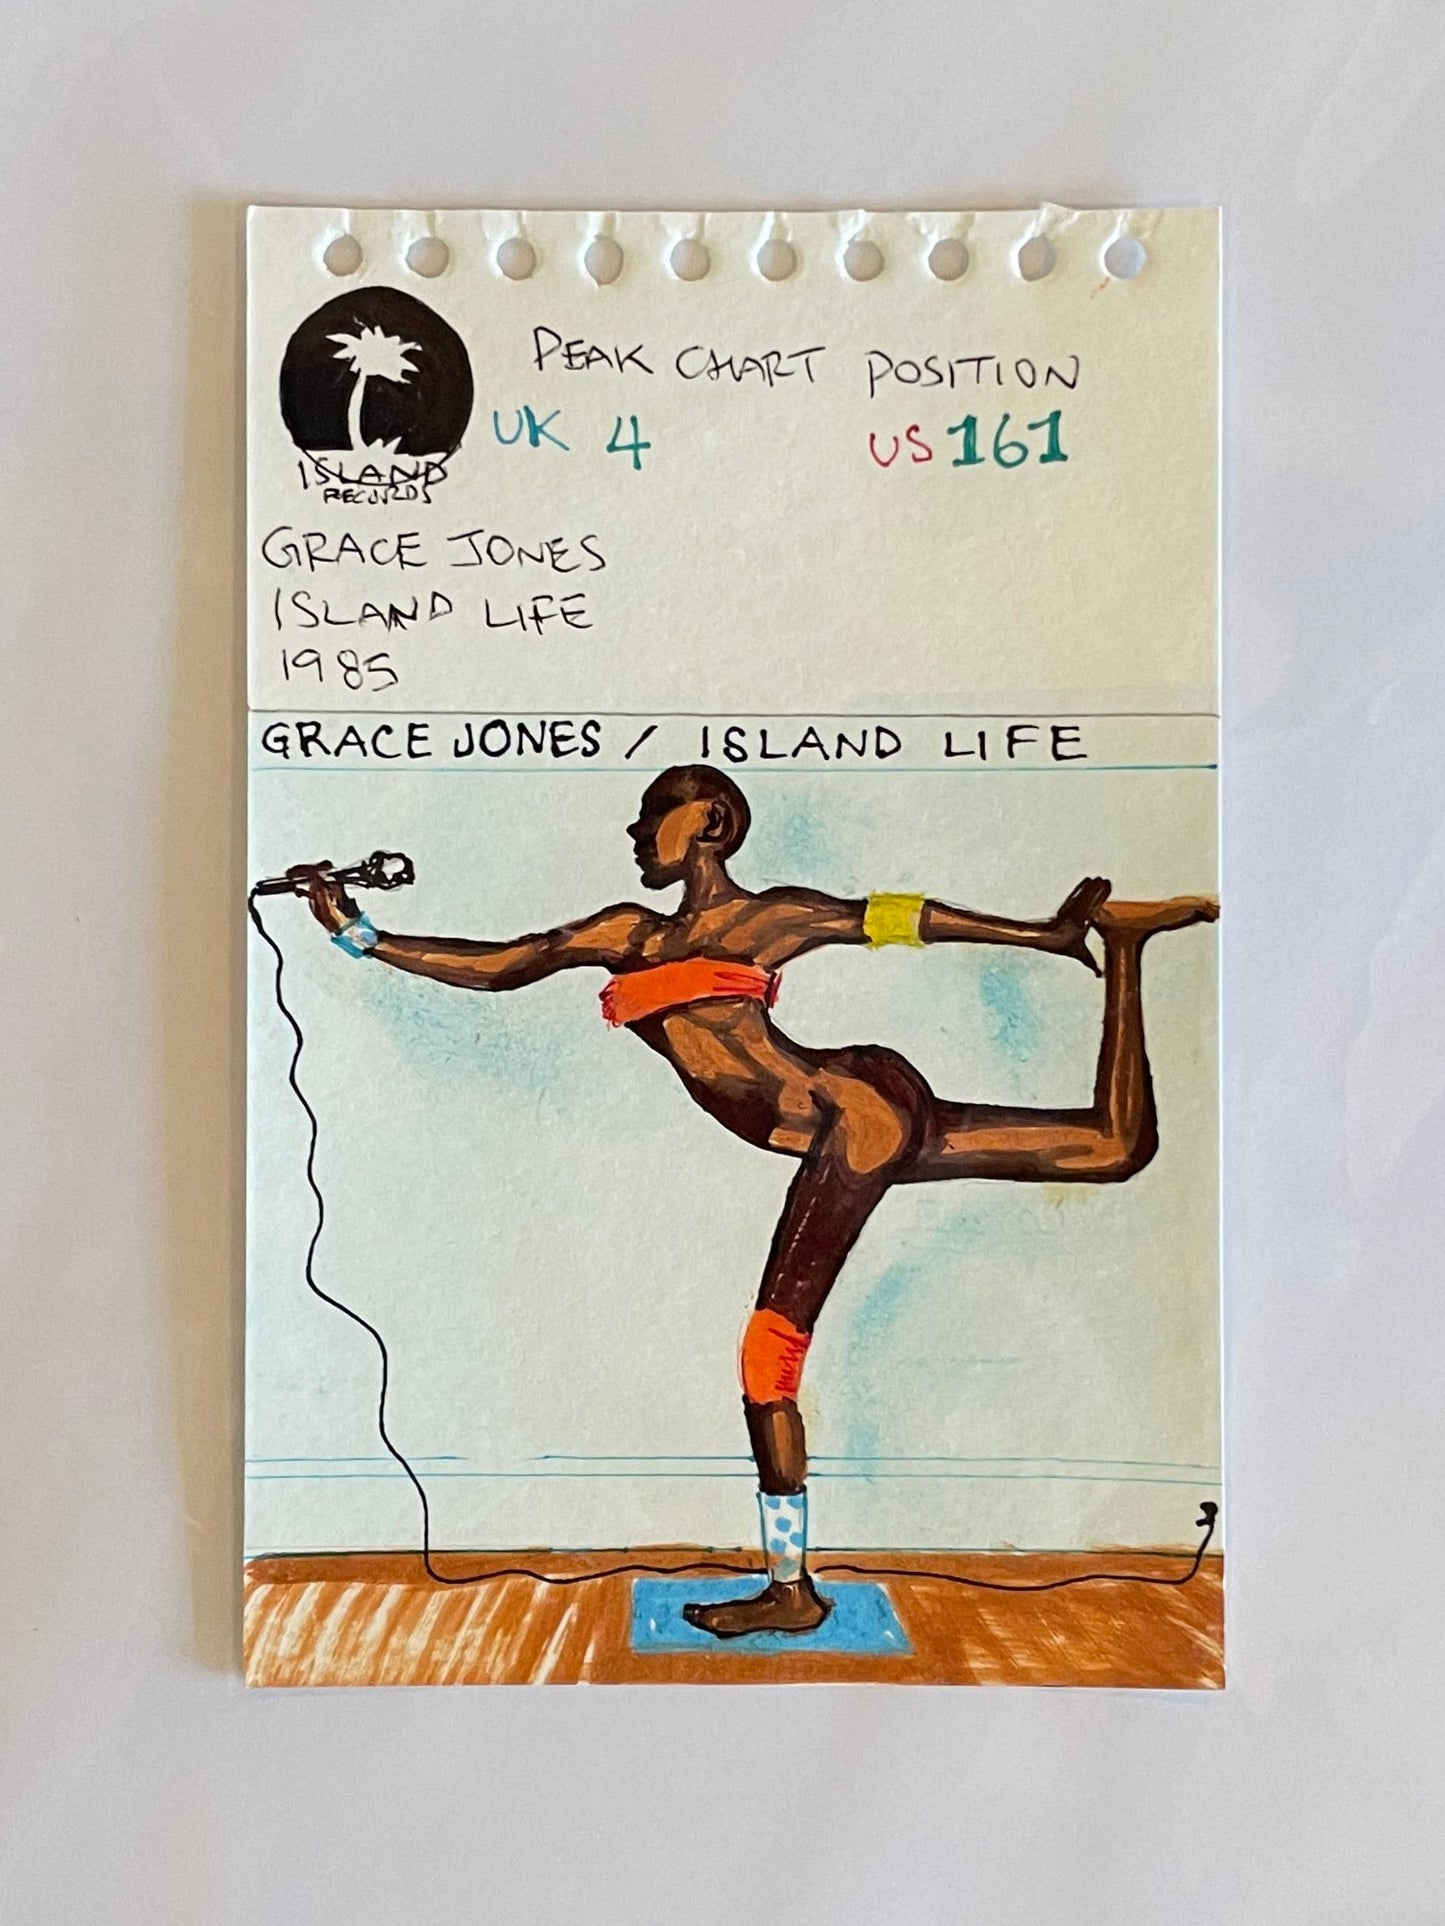 PEAK CHART POSITION
UK 4 US 161
ISLAND
RECORDS
GRACE JONES
ISLAND LIFE
1985
GRACE JONES / ISLAND LIFE